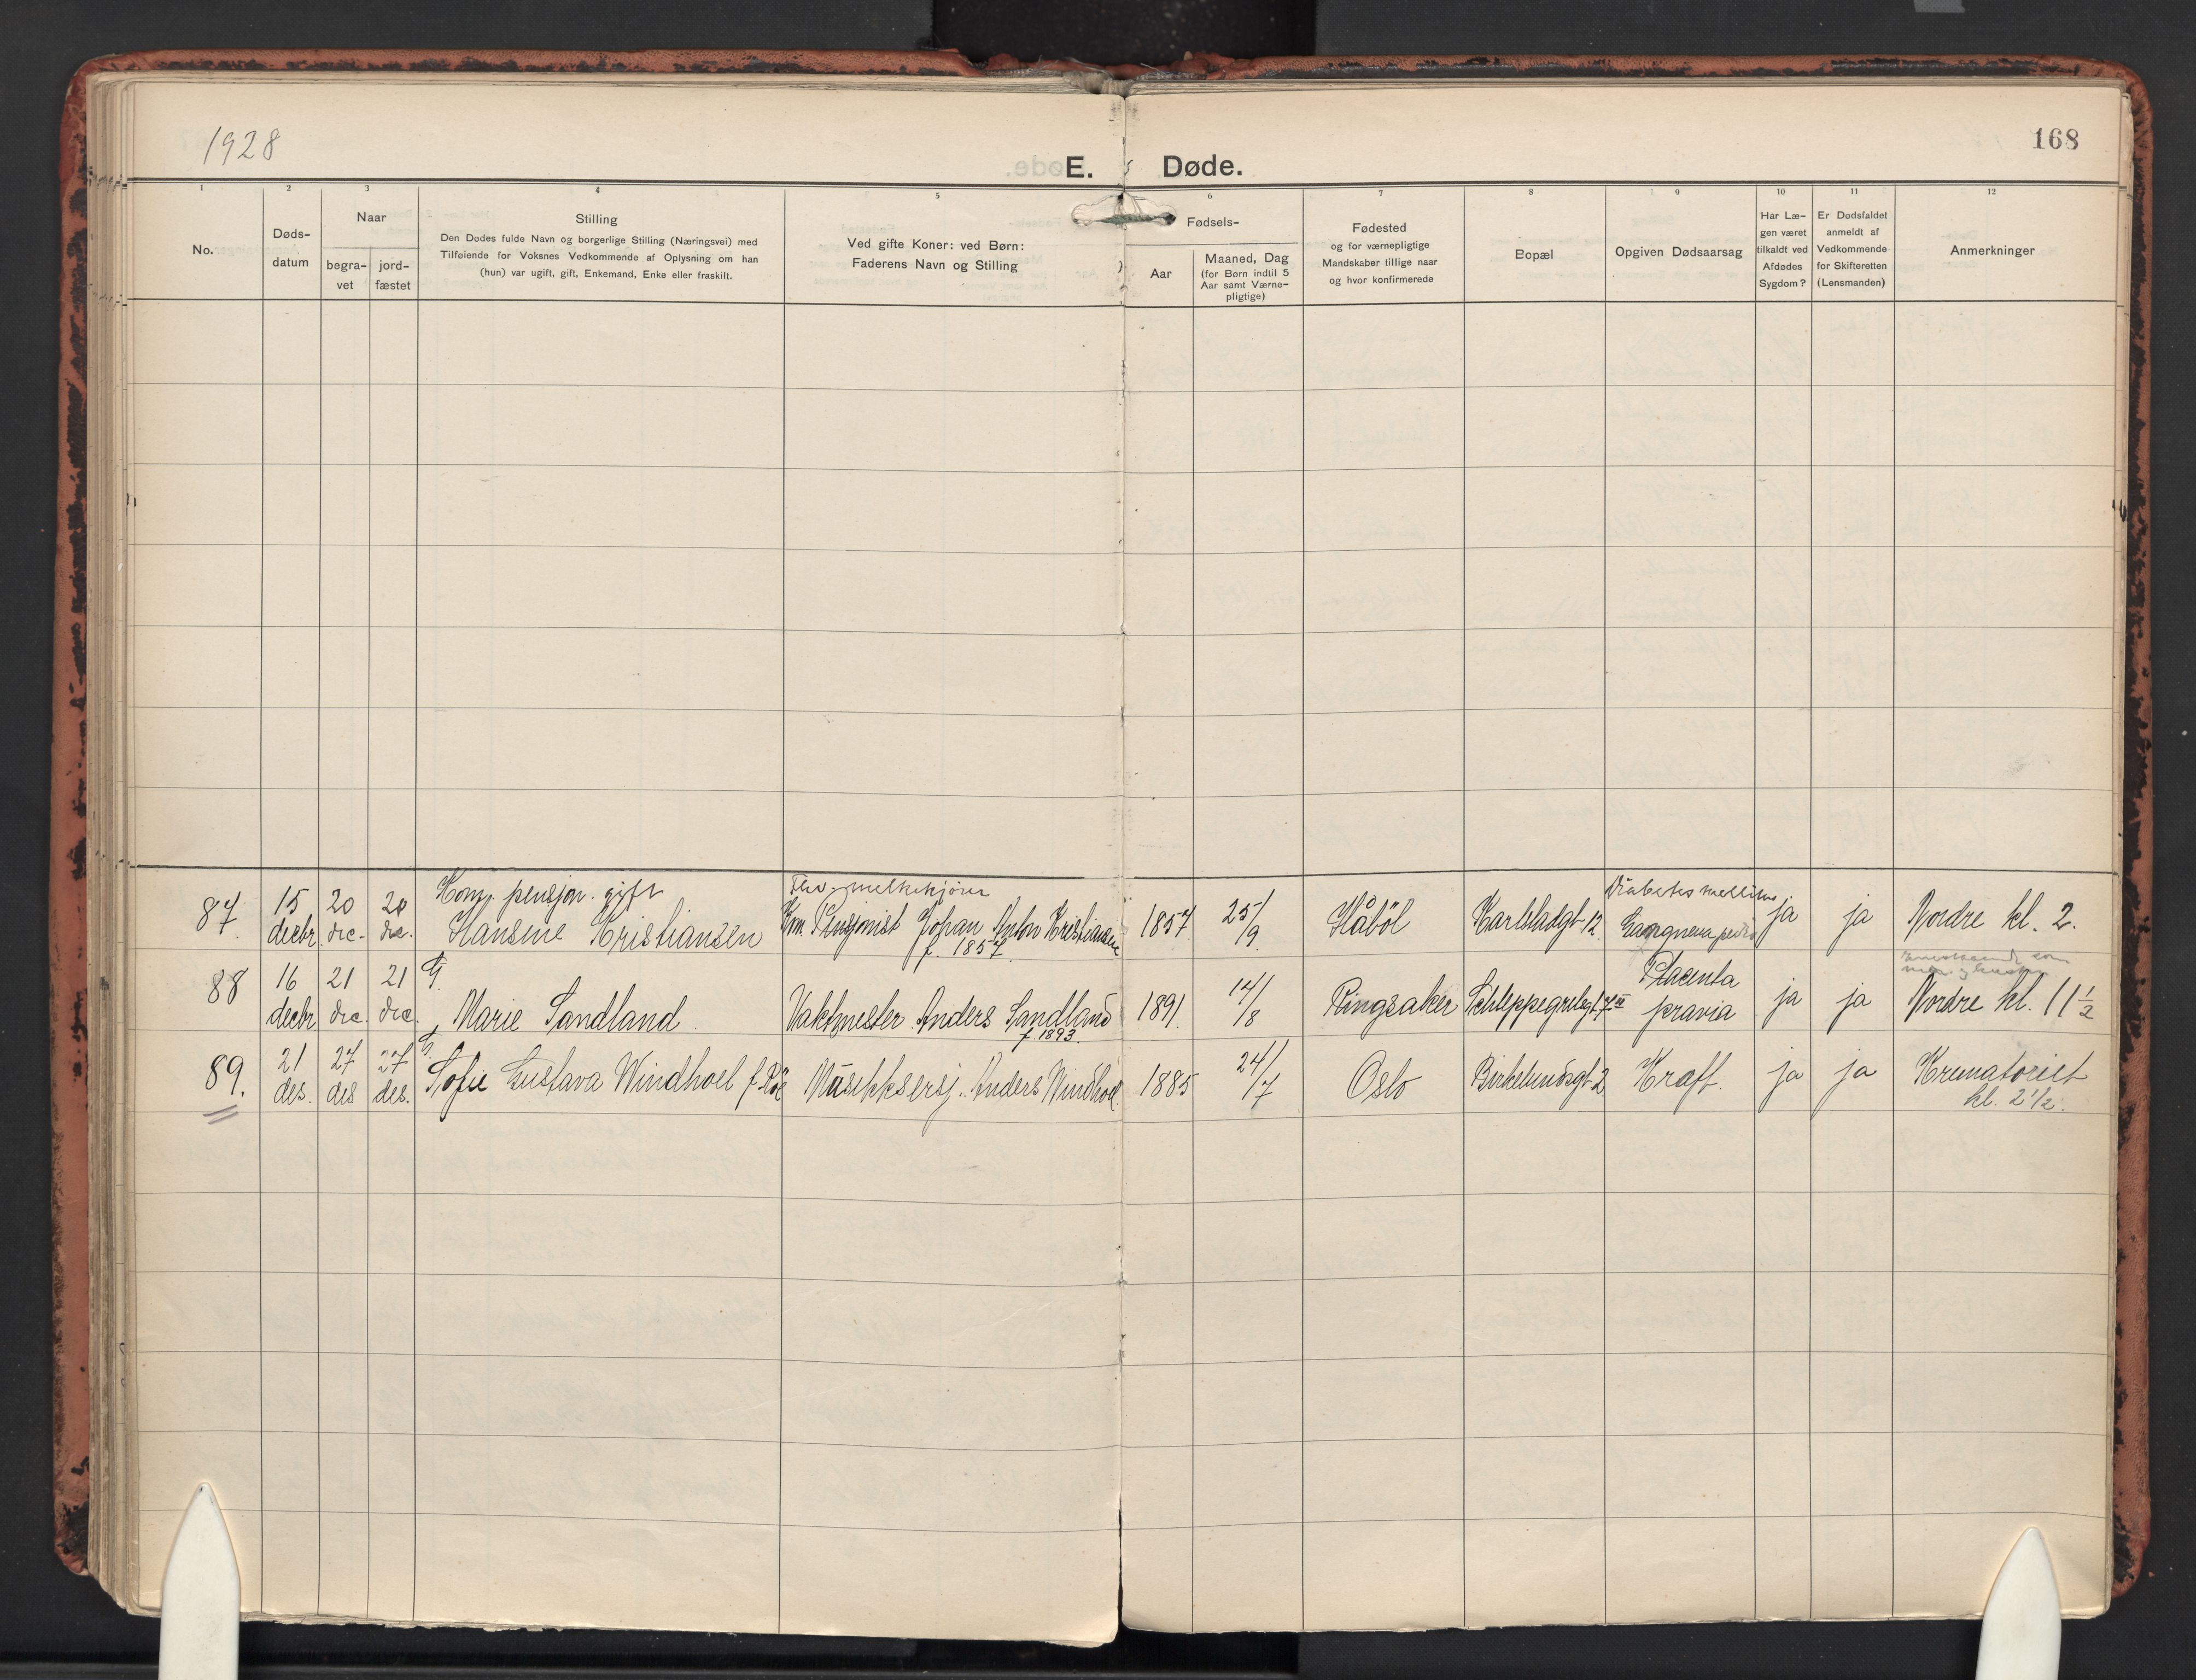 1928
168
E. Døde.
1 2 3 4 5 6 7 8 9 10 11 12
No.
Døds-
datum
Naar
begra-
vet
jord-
fæstet
Stilling
Den Dødes fulde Navn og borgerlige Stilling (Næringsvei) med
Tilføiende for Voksnes Vedkommende af Oplysning om han
(hun) var ugift, gift, Enkemand, Enke eller fraskilt.
Ved gifte Koner: ved Børn:
Faderens Navn og Stilling
Fødsels-
Aar
Maaned, Dag
(for Børn indtil 5
Aar samt Værne-
pligtige)
Fødested
og for værnepligtige
Mandskaber tillige naar
og hvor konfirmerede
Bopæl
Opgiven Dødsaarsag
Har Læ-
gen været
tilkaldt ved
Afdødes
Sygdom?
Er Dødsfaldet
anmeldt af
Vedkommende
for Skifteretten
(Lensmanden)
Anmerkninger
87.
15
decbr.
20
dec.
20
dec.
Kom. pensjon. gift
Hansine Kristiansen
melkekjører
Kom. Pensjonist Johan Anton Kristiansen
f. 1857.
1857
25/9.
Håbøl
Karlstadgt 12.
Diabetes mellitus
ja
ja
Nordre kl. 2.
88
16
decbr
21
dec.
21
dec.
G.
Marie Sandland.
Vaktmester Anders Sandland
f. 1893.
1891.
14/8
Ringsaker
Schleppegrelsgt 7 III
Placenta
prævia
ja
ja
Nordre kl. 11 1/2
89.
21
des.
27
des
27
des.
G.
Sofie Gustava Windhoel f. Røe
Musikksersj. Anders Windhoel
1885
24/7
Oslo
Birkelundsgt 2.
Kræft.
ja
ja
Krematoriet
kl. 2 1/2.